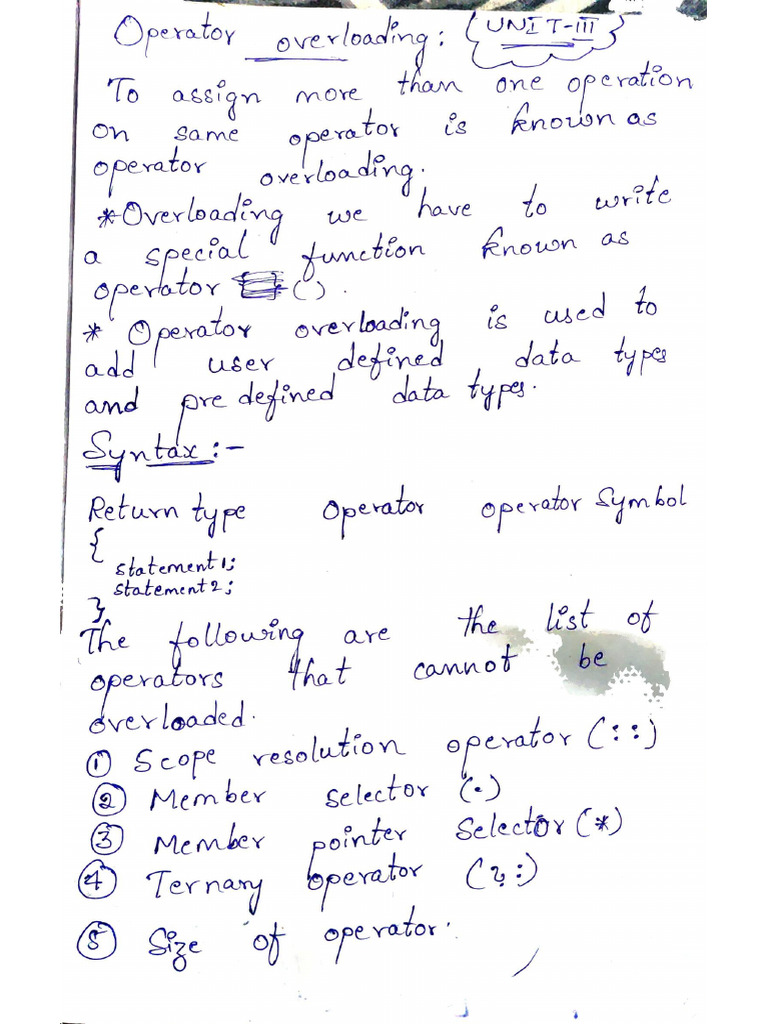 Operator overloading: UNIT-III
To assign more than one operation
on same operator is known as
operator overloading.
*Overloading we have to write
a special function known as
operator ().
* Operator overloading is used to
add user defined data types
and pre defined data types.
Syntax:-
Return type operator operator symbol
{
statement1;
statement2;
}
The following are the list of
operators that cannot be
overloaded.
① Scope resolution operator (::)
② Member selector (.)
③ Member pointer selector (*)
④ Ternary operator (?:)
⑤ Size of operator.